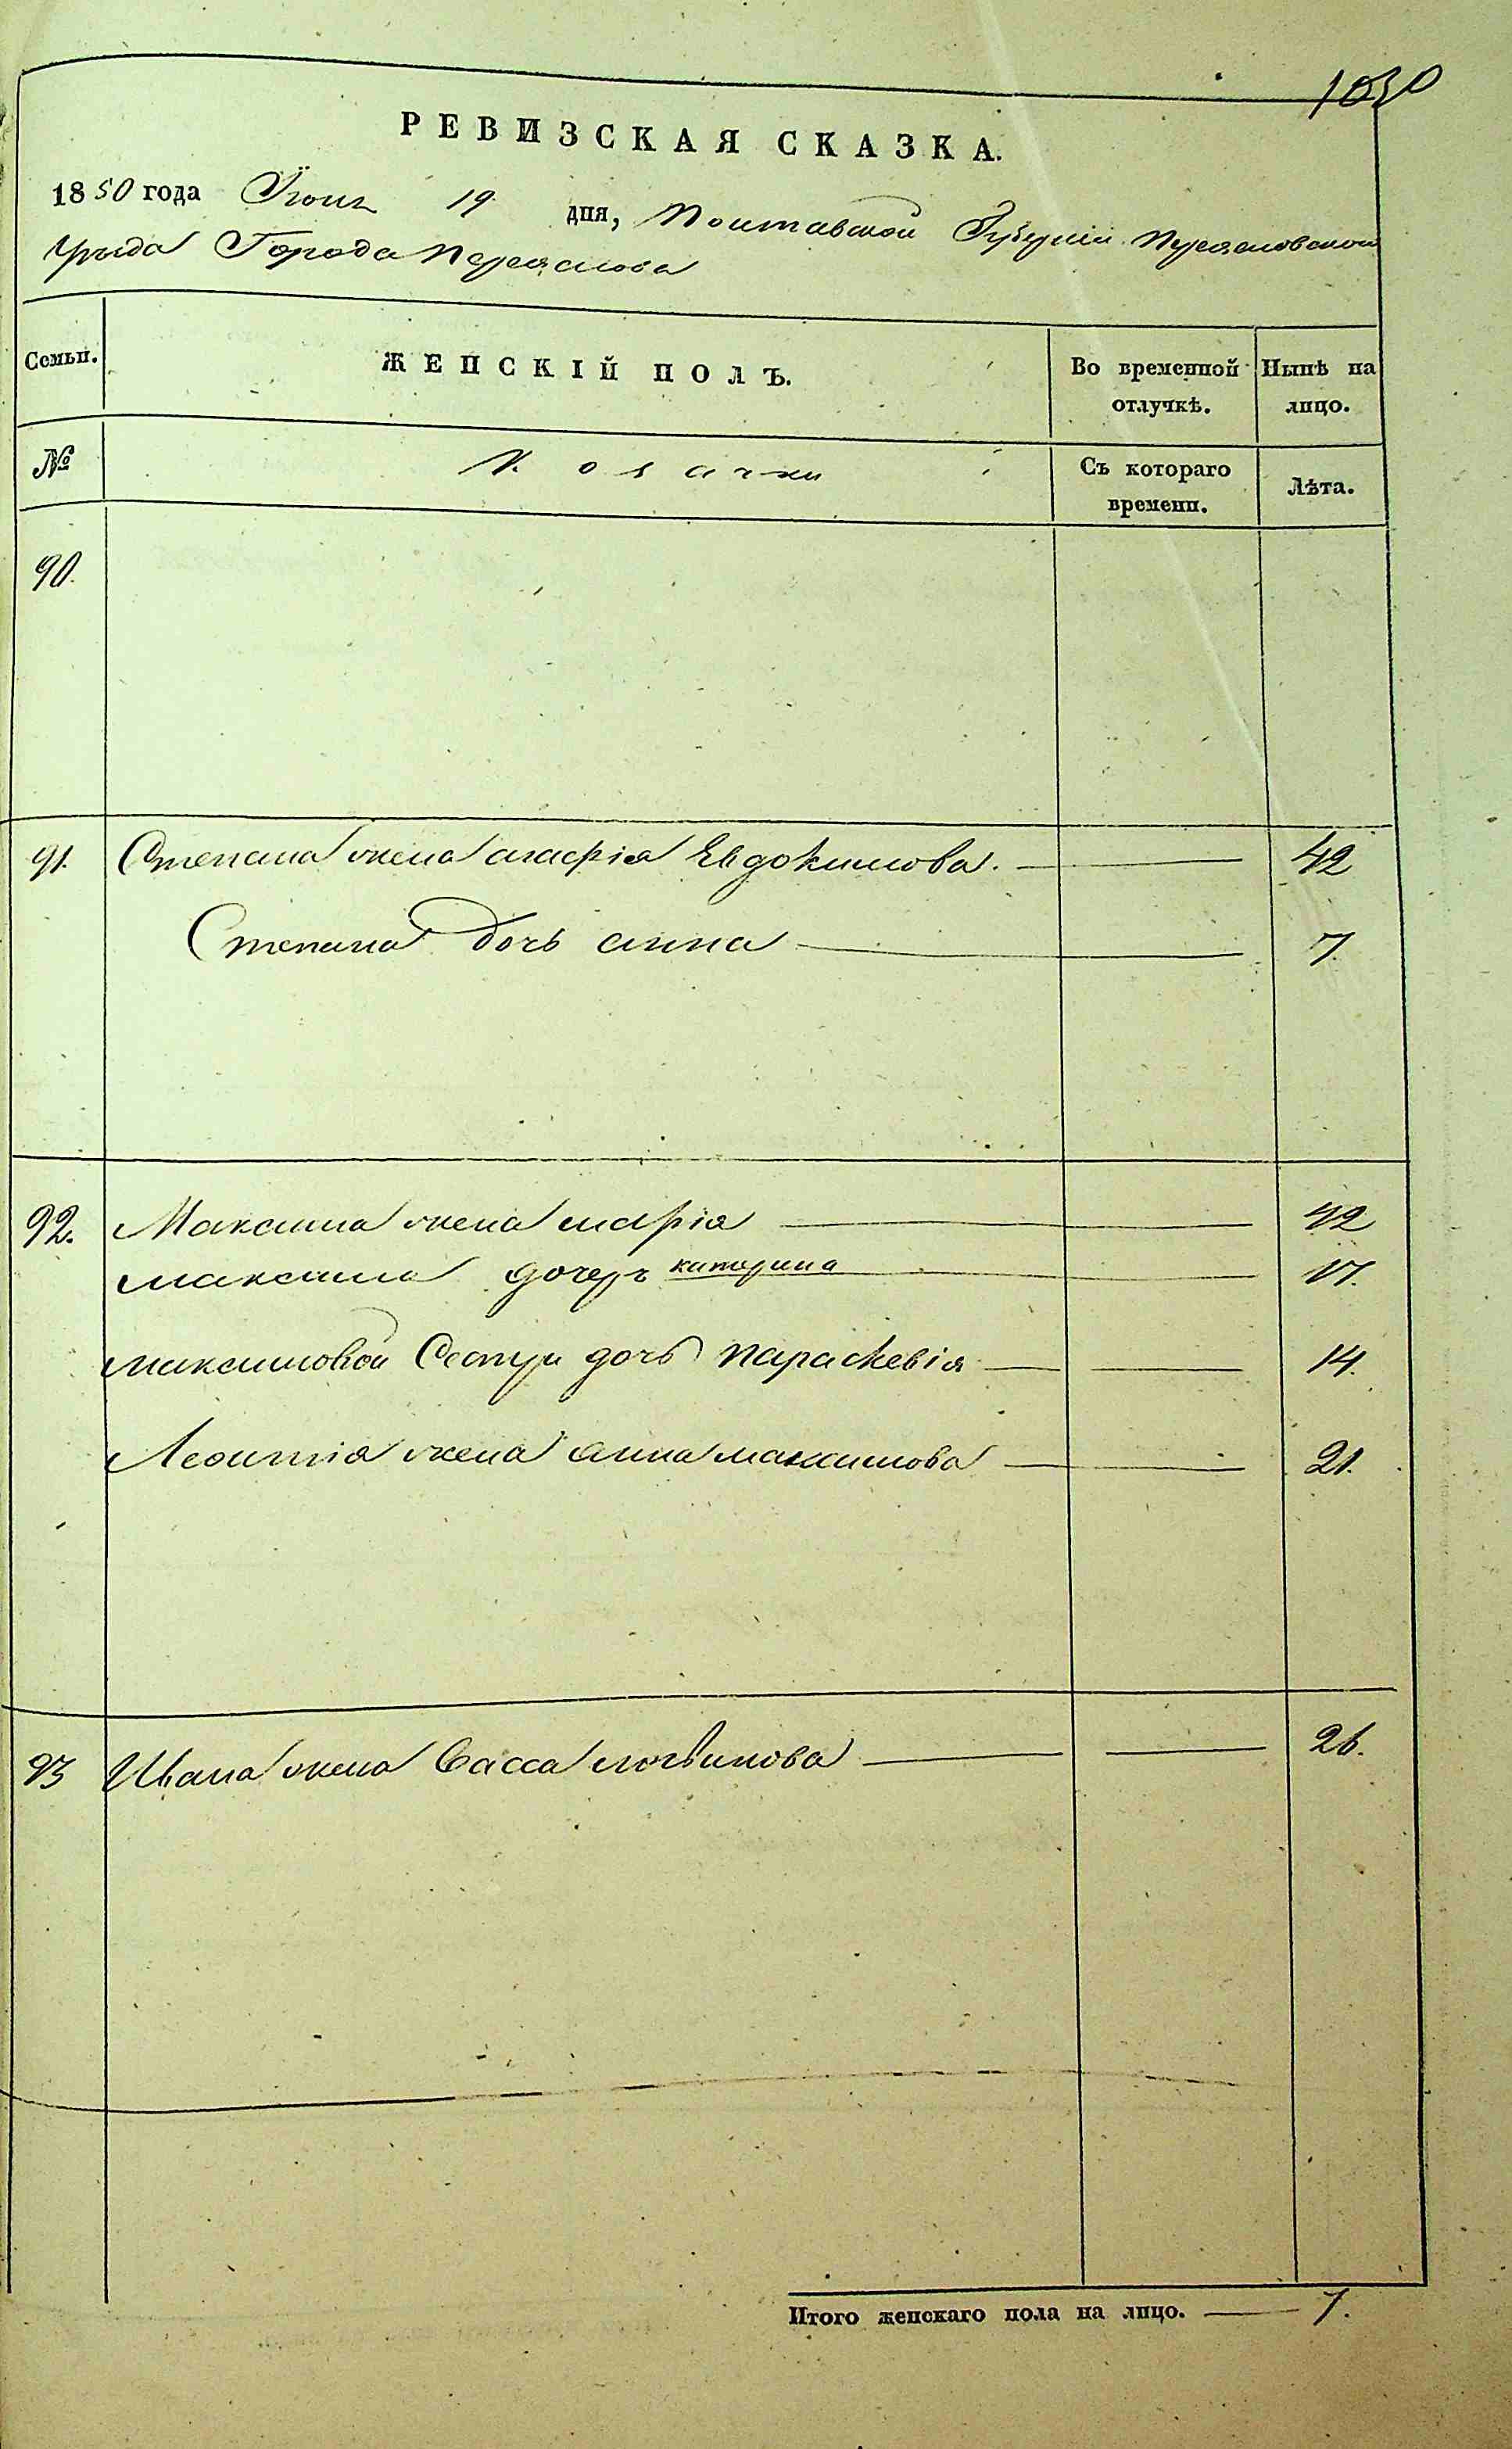 1030
РЕВИЗСКАЯ СКАЗКА.
1850 года Іюня 19 дня, Полтавской Губерніи Переясловского
уезда Города Переяслова
Семьи. ЖЕНСКІЙ ПОЛЪ. Во временной Нынѣ на
отлучкѣ. лицо.
№ Козачки Съ котораго Лѣта.
времени.
90.
91. Степана жена агафія Евдокимова. 42
Степана дочь анна 7.
92. Максима жена марія 42
максима дочерь катерина 17.
максимовой Сестри дочь параскевія 14.
Леонтія жена анна максимова 21.
93 Ивана жена Васса логвинова 26.
Итого женскаго пола на лицо. 7.